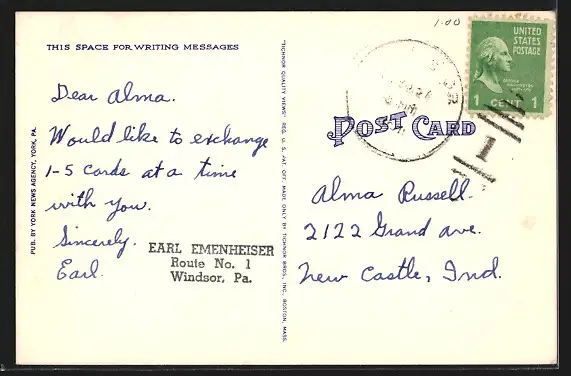 1.00
THIS SPACE FOR WRITING MESSAGES
Dear Alma.
Would like to exchange
1-5 cards at a time
with you.
Sincerely.
Earl.
EARL EMENHEISER
Route No. 1
Windsor, Pa.
PUB. BY YORK NEWS AGENCY, YORK, PA.
"TICHNOR QUALITY VIEWS" REG. U. S. PAT. OFF. MADE ONLY BY TICHNOR BROS., INC., BOSTON, MASS.
UNITED
STATES
POSTAGE
1 CENT 1
POST CARD
1
Alma Russell.
2122 Grand ave.
New Castle, Ind.